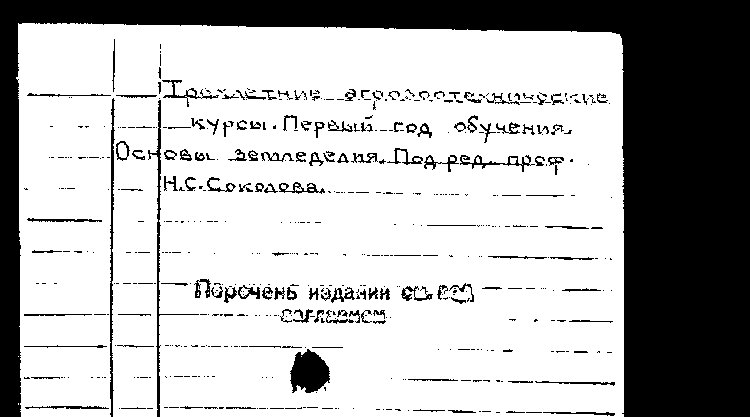 Трехлетние агрозоотехнические
курсы. Первый год обучения.
Основы земледелия. Под ред. проф.
Н.С.Соколова.
Перечень изданий см. под
заглавием